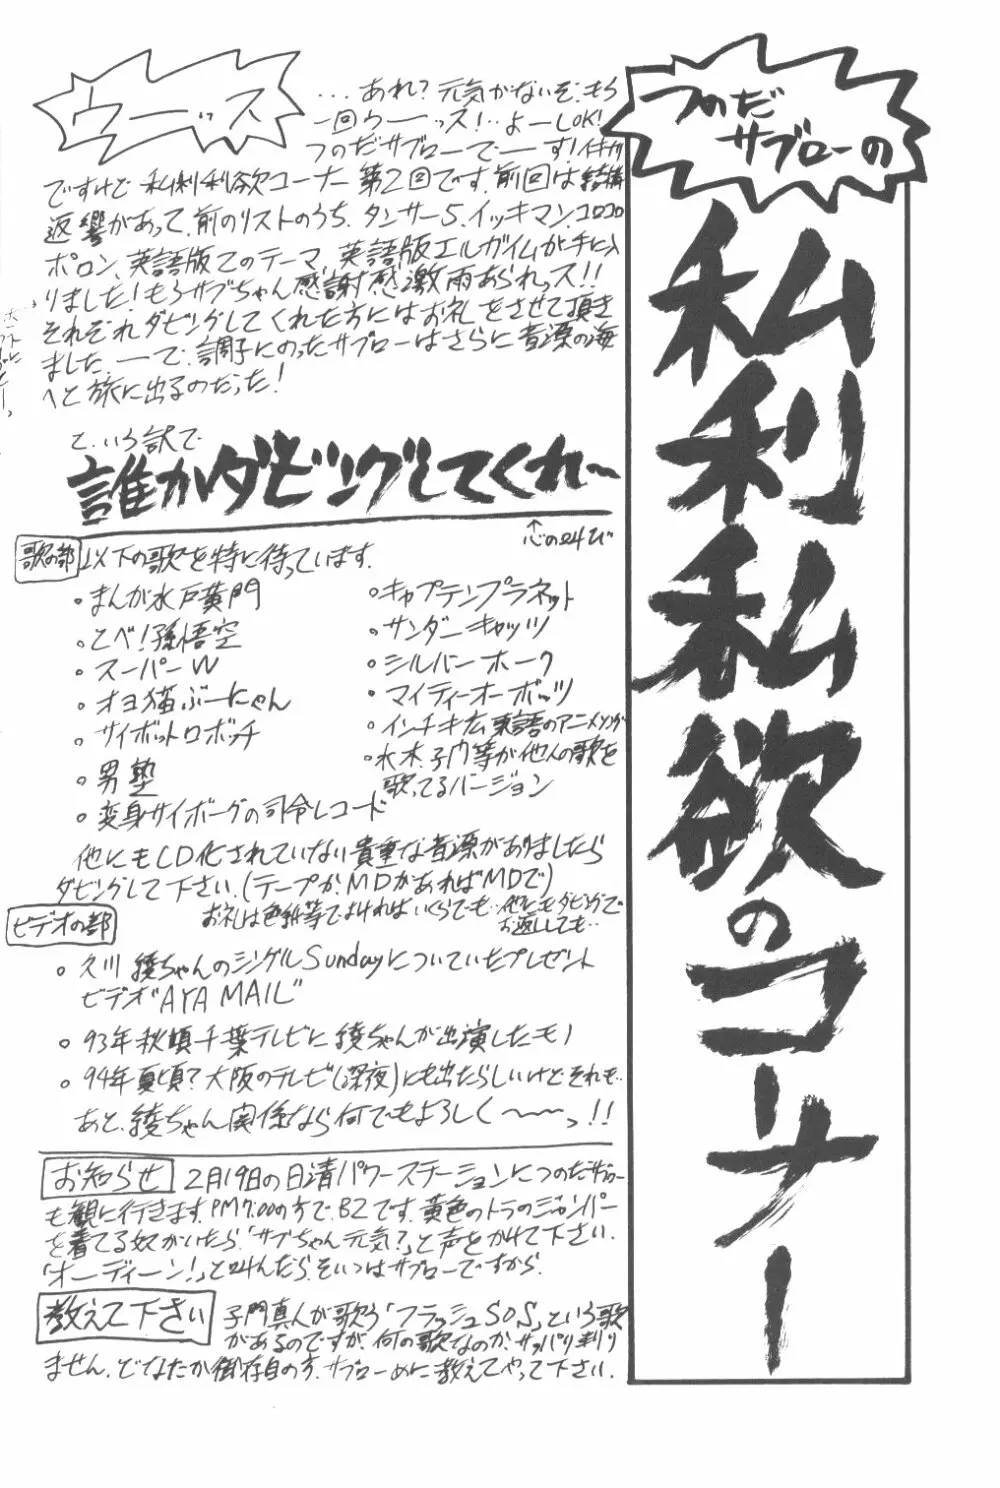 つのだ
サブローの
私利私欲のコーナー
ウーッス
...あれ？元気がないぞ.もう
一回ウーーッス！..よーしOK!
つのだサブローでーーす！
ですけど 私利私欲コーナー 第2回です.前回は結構
返響があって、前のリストのうち、タンサー5、イッキマン、コロコロ
ポロン、英語版Zのテーマ、英語版エルガイムが手に入
りました！もうサブちゃん感謝感激雨あられっス!!
それぞれダビングしてくれた方にはお礼をさせて頂き
ました.ーーで、調子にのったサブローはさらに音源の海
へと旅に出るのだった！
と、いう訳で
誰かダビングしてくれ〜
↑心の叫び
歌の部 以下の歌を特に待っています.
・まんが水戸黄門
・とべ！孫悟空
・スーパーW
・オヨ猫ぶーにゃん
・サイボットロボッチ
・男塾
・変身サイボーグの司令レコード
・キャプテンプラネット
・サンダーキャッツ
・シルバーホーク
・マイティーオーボッツ
・インチキ広東語のアニメソング
・水木、子門等が他人の歌を
歌ってるバージョン
他にもCD化されていない貴重な音源がありましたら
ダビングして下さい.(テープか、MDがあればMDで)
お礼は色紙等でよければいくらでも…他にもダビングで
お返ししても…
ビデオの部
○久川綾ちゃんのシングルSundayについていたプレゼント
ビデオ"AYA MAIL"
○93年秋頃千葉テレビに綾ちゃんが出演したモノ
○94年夏頃？大阪のテレビ(深夜)にも出たらしいけどそれも…
あと、綾ちゃん関係なら何でもよろしく〜〜っ!!
お知らせ 2月19日の日清パワーステーションにつのだサブロー
も観に行きます.PM7:00の方で、B2です.黄色のトラのジャンパー
を着てる奴がいたら、「サブちゃん元気？」と声をかけて下さい.
「オーディーン！」と叫んだら、そいつはサブローですから.
教えて下さい 子門真人が歌う「フラッシュSOS」という歌
があるのですが、何の歌なのか、サッパリ判り
ません、どなたか御存自の方、サブローめに教えてやって下さい.